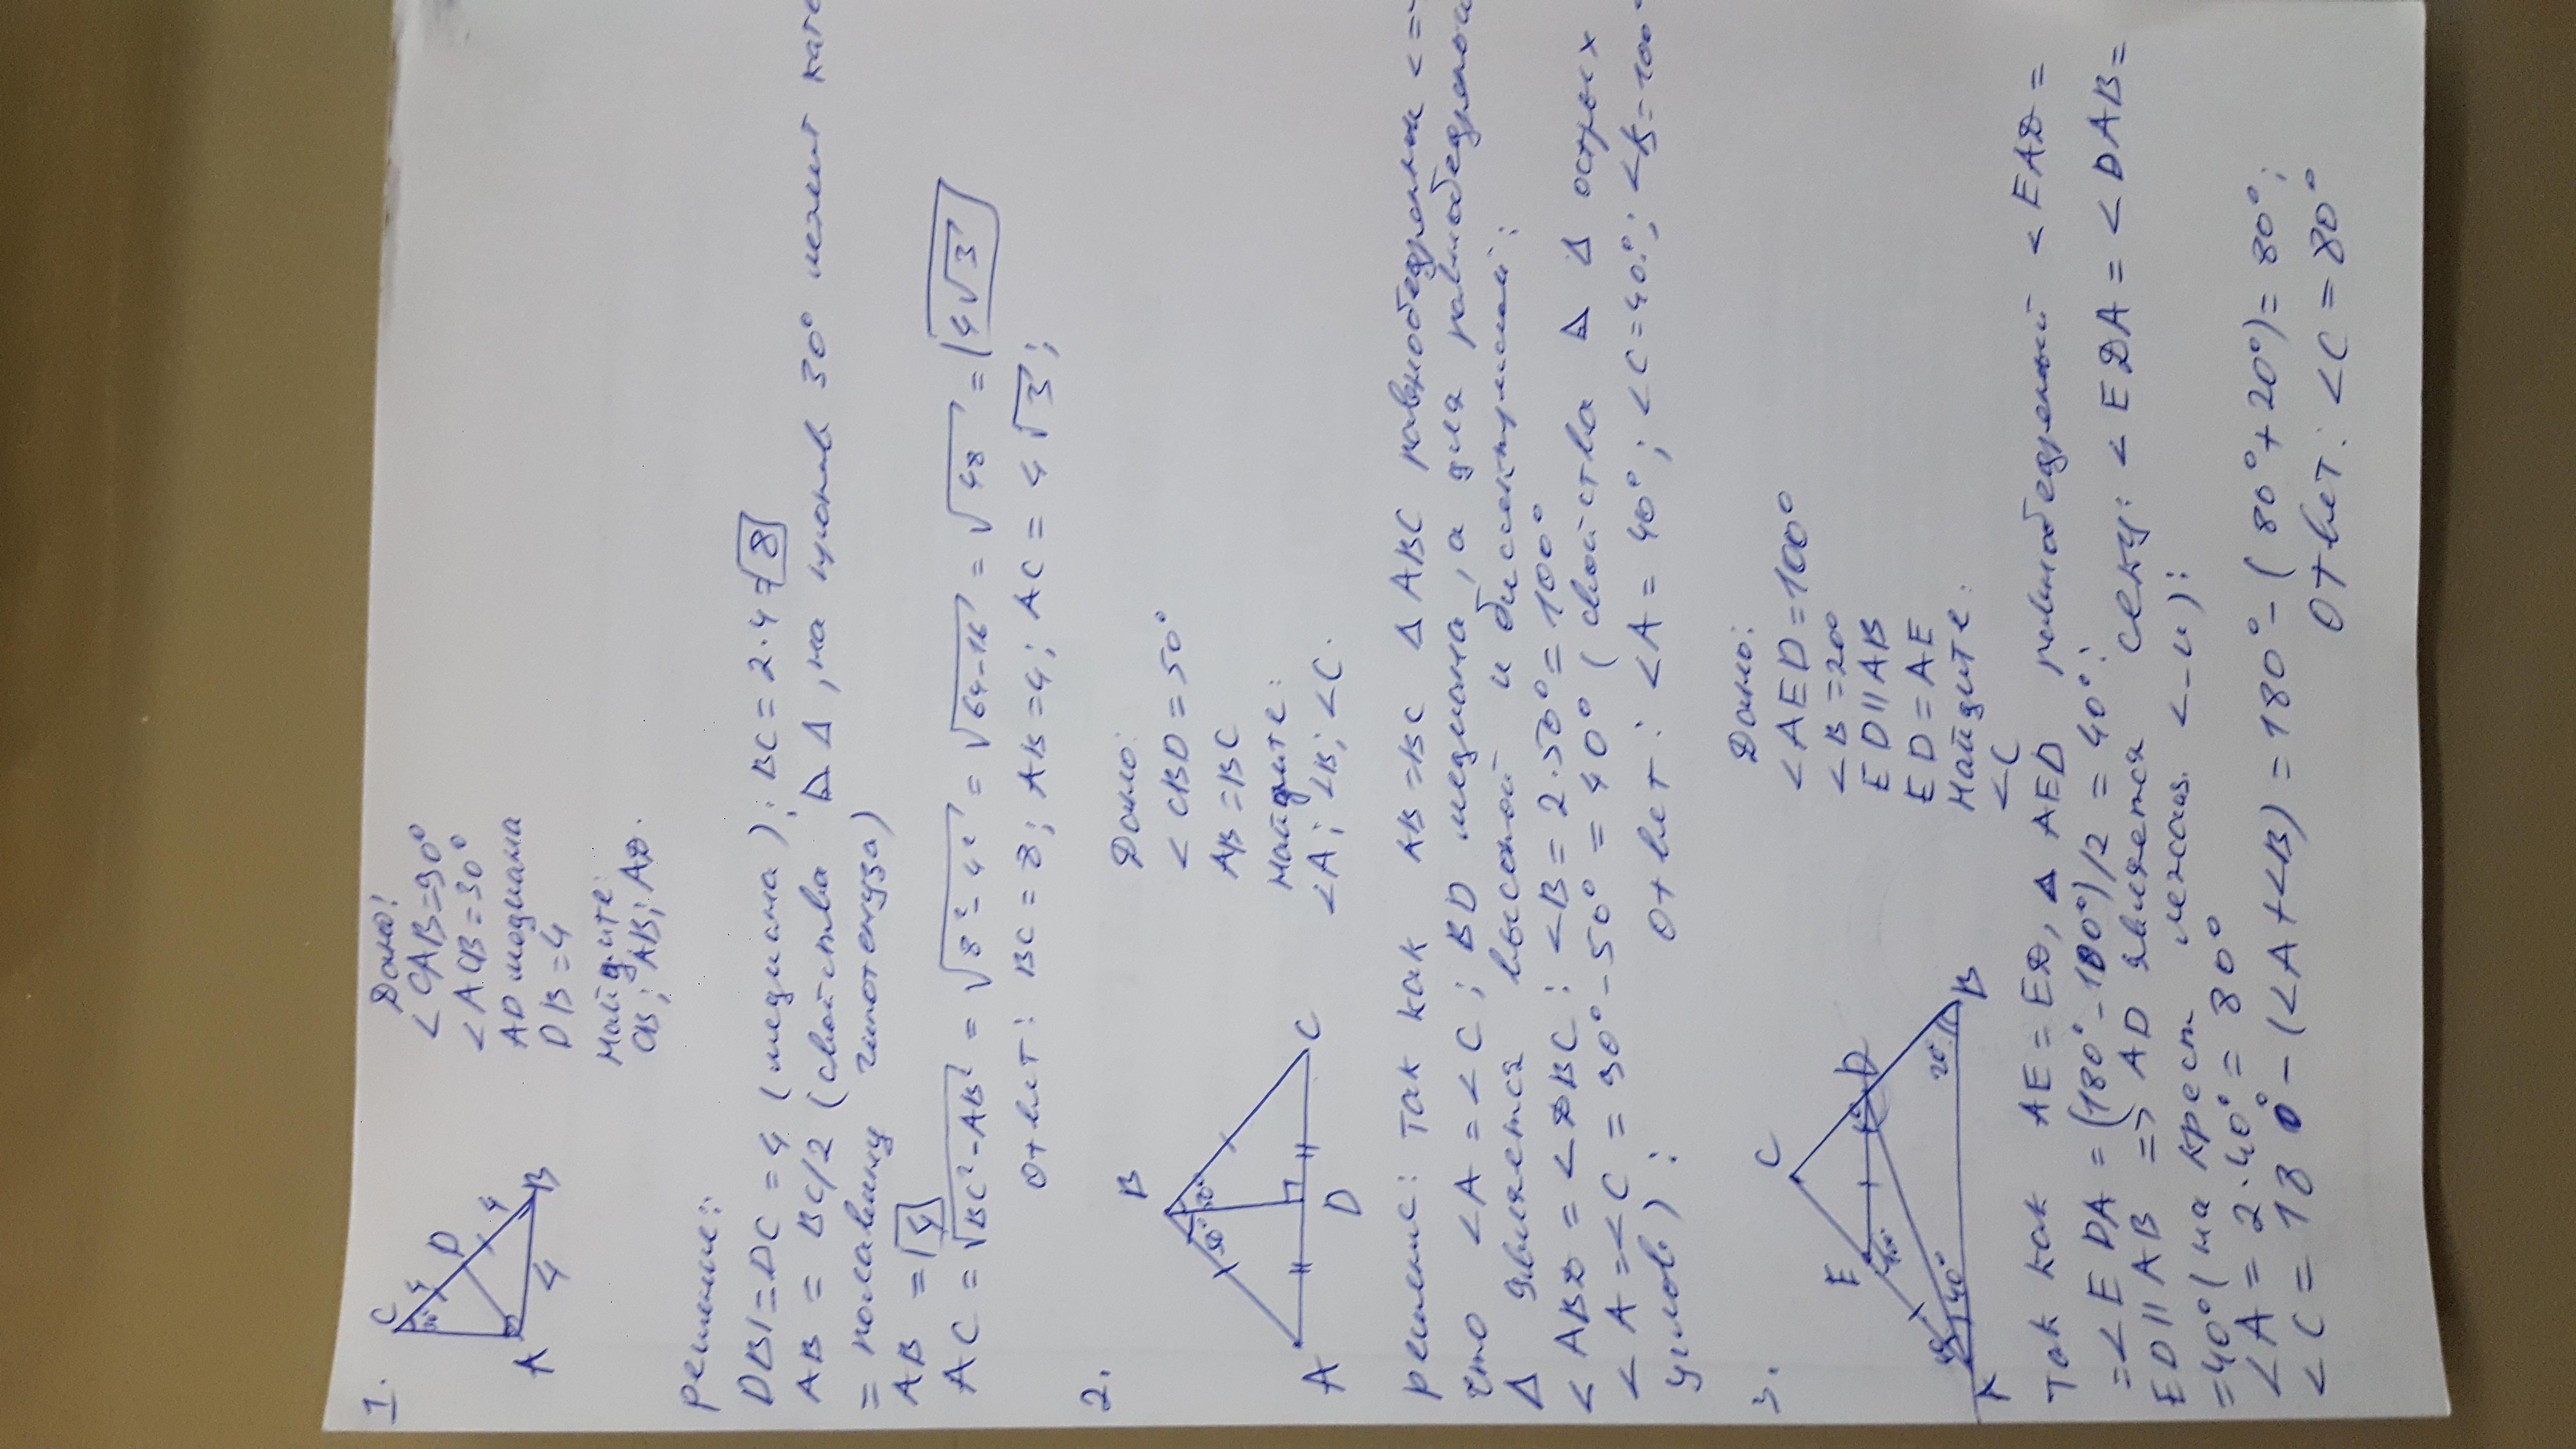 1.
C
30°
4
D
4
A
4
B
Дано:
∠CAB=90°
∠ACB=30°
AD медиана
DB=4
Найдите:
CB; AB; AD.
Решение:
DB=DC=4 (медиана); BC=2·4=8
AB = BC/2 (свойства ⊿ Δ, на против 30° лежит кате
= половину гипотенуза)
AB = 4
AC = √BC²-AB² = √8²-4² = √64-16 = √48 = 4√3
Ответ: BC=8; AB=4; AC=4√3;
2.
B
50° 50°
A
D
C
Дано:
∠CBD=50°
AB=BC
Найдите:
∠A; ∠B; ∠C.
Решение: Так как AB=BC Δ ABC равнобедрення ∠=
что ∠A=∠C; BD медиана, а для равнобедренной
Δ является высотой и биссектрисой:
∠ABD=∠DBC: ∠B=2·50°=100°
∠A=∠C=90°-50°=40° (свойства ⊿ Δ острых
углов):
Ответ: ∠A=40°; ∠C=40°; ∠B=100°
3.
C
E
D
100°
40°
20°
A
B
Дано:
∠AED=100°
∠B=20°
ED||AB
ED=AE
Найдите:
∠C
Так как AE=ED, Δ AED равнобедренный ∠EAD=
=∠EDA=(180°-100°)/2=40°:
ED||AB => AD является секущ: ∠EDA=∠DAB=
=40° (на крест лежащ. ∠-и):
∠A=2·40°=80°
∠C=180°-(∠A+∠B)=180°-(80°+20°)=80°;
Ответ: ∠C=80°